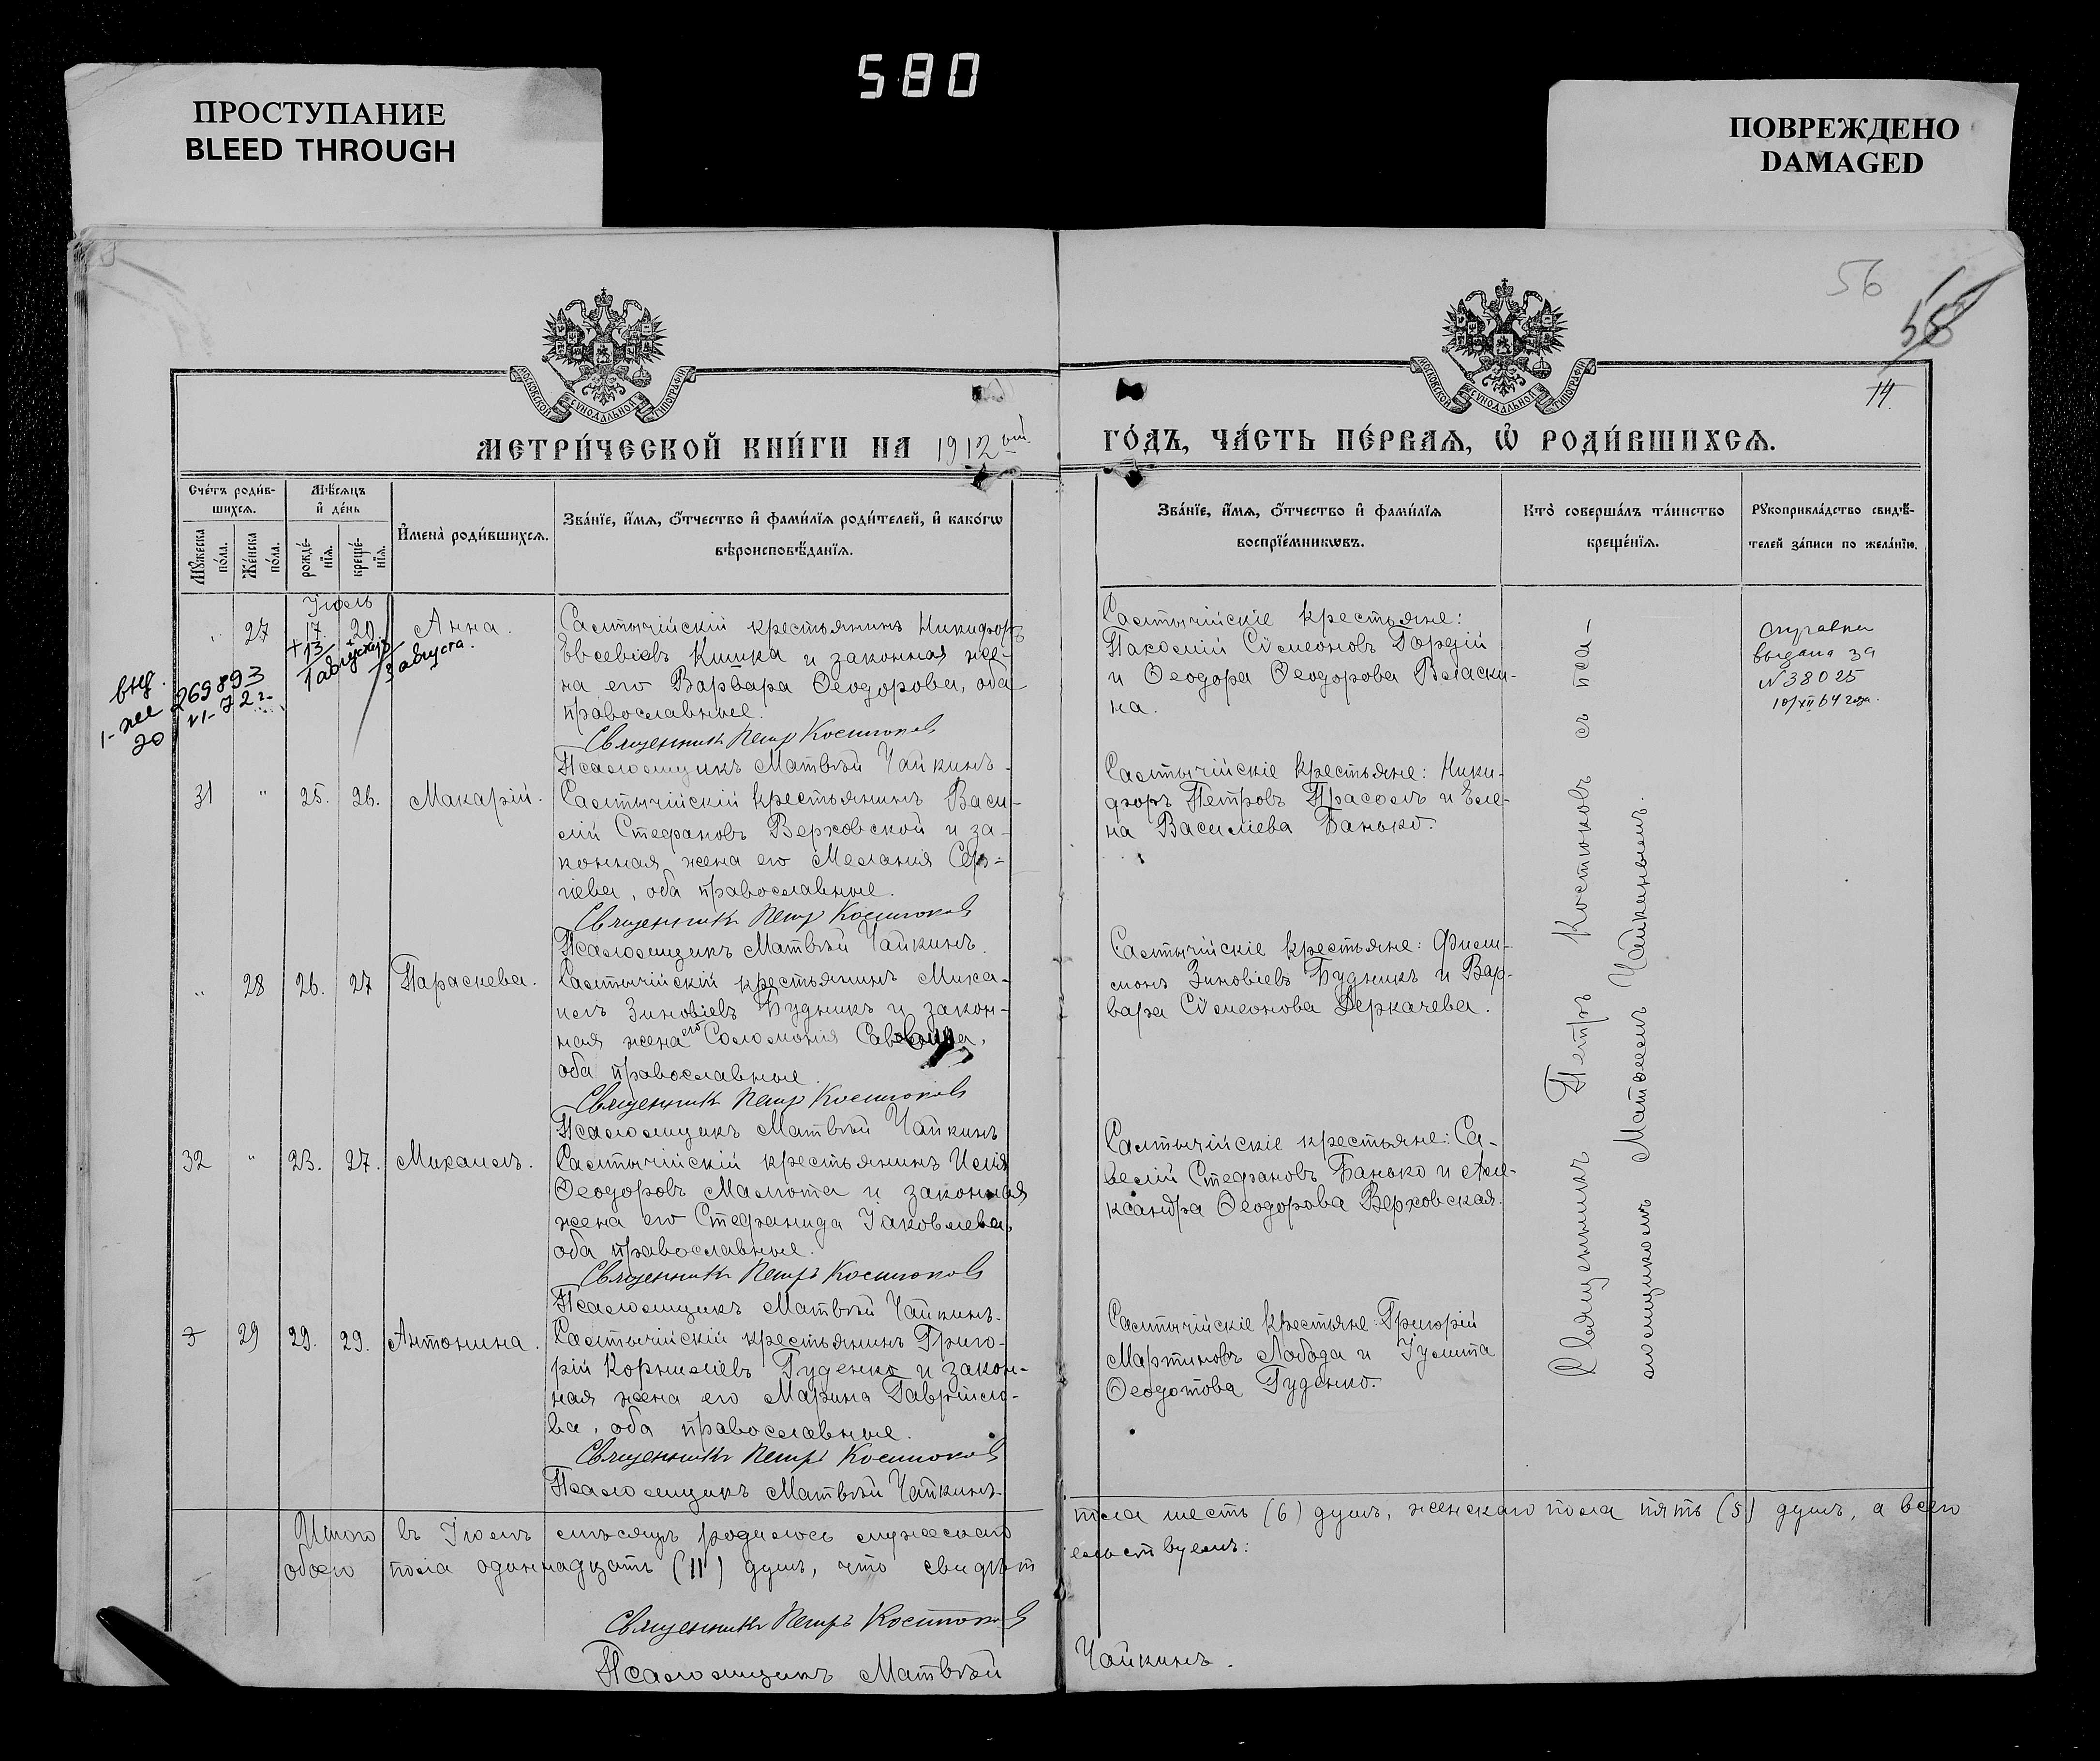 580
ПРОСТУПАНИЕ
BLEED THROUGH
ПОВРЕЖДЕНО
DAMAGED
56
58
14.
МОСКОВСКОЙ СѴНОДАЛЬНОЙ ТИПОГРАФІИ
МОСКОВСКОЙ СѴНОДАЛЬНОЙ ТИПОГРАФІИ
МЕТРИ́ЧЕСКОЙ КНИ́ГИ НА 1912 ый
ГО́ДЪ, ЧА́СТЬ ПЕ́РВАЯ, Ѡ҆ РОДИ́ВШИХСЯ.
Сче́тъ роди́в-
шихся.
Мꙋ́жеска по́ла.
Же́нска по́ла.
Мѣ́сяцъ
и҆ де́нь
рожде́-
нїя.
креще́-
нїя.
И҆мена̀ роди́вшихся.
Зва́нїе, и҆́мя, ѻ҆́тчество и҆ фами́лїя роди́телей, и҆ како́гѡ
вѣроисповѣ́данїя.
Зва́нїе, и҆́мя, ѻ҆́тчество и҆ фами́лїя
воспрїе́мникѡвъ.
Кто̀ соверша́лъ та́инство
креще́нїя.
Рꙋкоприкла́дство свидѣ́-
телей за́писи по жела́нїю.
Іюль
„ 27 17. 20. Анна.
+13
1 августа
3 августа.
выд.
269893
20 VI-72 г.
Салтычійскій крестьянинъ Никифоръ
Евсевіевъ Кишка и законная же-
на его Варвара Ѳеодорова, оба
православные.
Священникъ Петръ Костюковъ
Псаломщикъ Матвѣй Чайкинъ.
Салтычійскіе крестьяне:
Пахомій Сѵмеоновъ Гордій
и Ѳеодора Ѳеодорова Власки-
на.
справка
выдана за
№ 38025
10/XII 64 года.
31 „ 25. 26. Макарій.
Салтычійскій крестьянинъ Васи-
лій Стефановъ Верховской и за-
конная жена его Меланія Сер-
гіева, оба православные.
Священникъ Петръ Костюковъ
Псаломщикъ Матвѣй Чайкинъ.
Салтычійскіе крестьяне: Ники-
форъ Петровъ Прасолъ и Еле-
на Василіева Банько.
„ 28 26. 27 Параскева.
Салтычійскій крестьянинъ Миха-
илъ Зиновіевъ Будникъ и закон-
ная жена его Соломонія
оба православные.
Священникъ Петръ Костюковъ
Псаломщикъ Матвѣй Чайкинъ
Салтычійскіе крестьяне: Фили-
монъ Зиновіевъ Будникъ и Вар-
вара Сѵмеонова Деркачева.
32 „ 23. 27. Михаилъ.
Салтычійскій крестьянинъ Илія
Ѳеодоровъ Малюта и законная
жена его Стефанида Іаковлева,
оба православные.
Священникъ Петръ Костюковъ
Псаломщикъ Матвѣй Чайкинъ.
Салтычійскіе крестьяне: Са-
велій Стефановъ Банько и Але-
ксандра Ѳеодорова Верховская.
29 29. 29. Антонина.
Салтычійскій крестьянинъ Григо-
рій Корниліевъ Гуденко и закон-
ная жена его Марина Гавріило-
ва, оба православные.
Священникъ Петръ Костюковъ
Псаломщикъ Матвѣй Чайкинъ.
Салтычійскіе крестьяне: Григорій
Мартиновъ Лобода и Іулита
Ѳеодотова Гуденко.
Священникъ Петръ Костюковъ съ пса-
ломщикомъ Матѳеемъ Чайкинымъ.
Итого въ Іюлѣ мѣсяцѣ родилось мужескаго
пола шесть (6) душъ, женскаго пола пять (5) душъ, а всего
обоего пола одиннадцать (11) душъ, что свидѣт
ельствуемъ:
Священникъ Петръ Костюковъ
Псаломщикъ Матвѣй Чайкинъ.